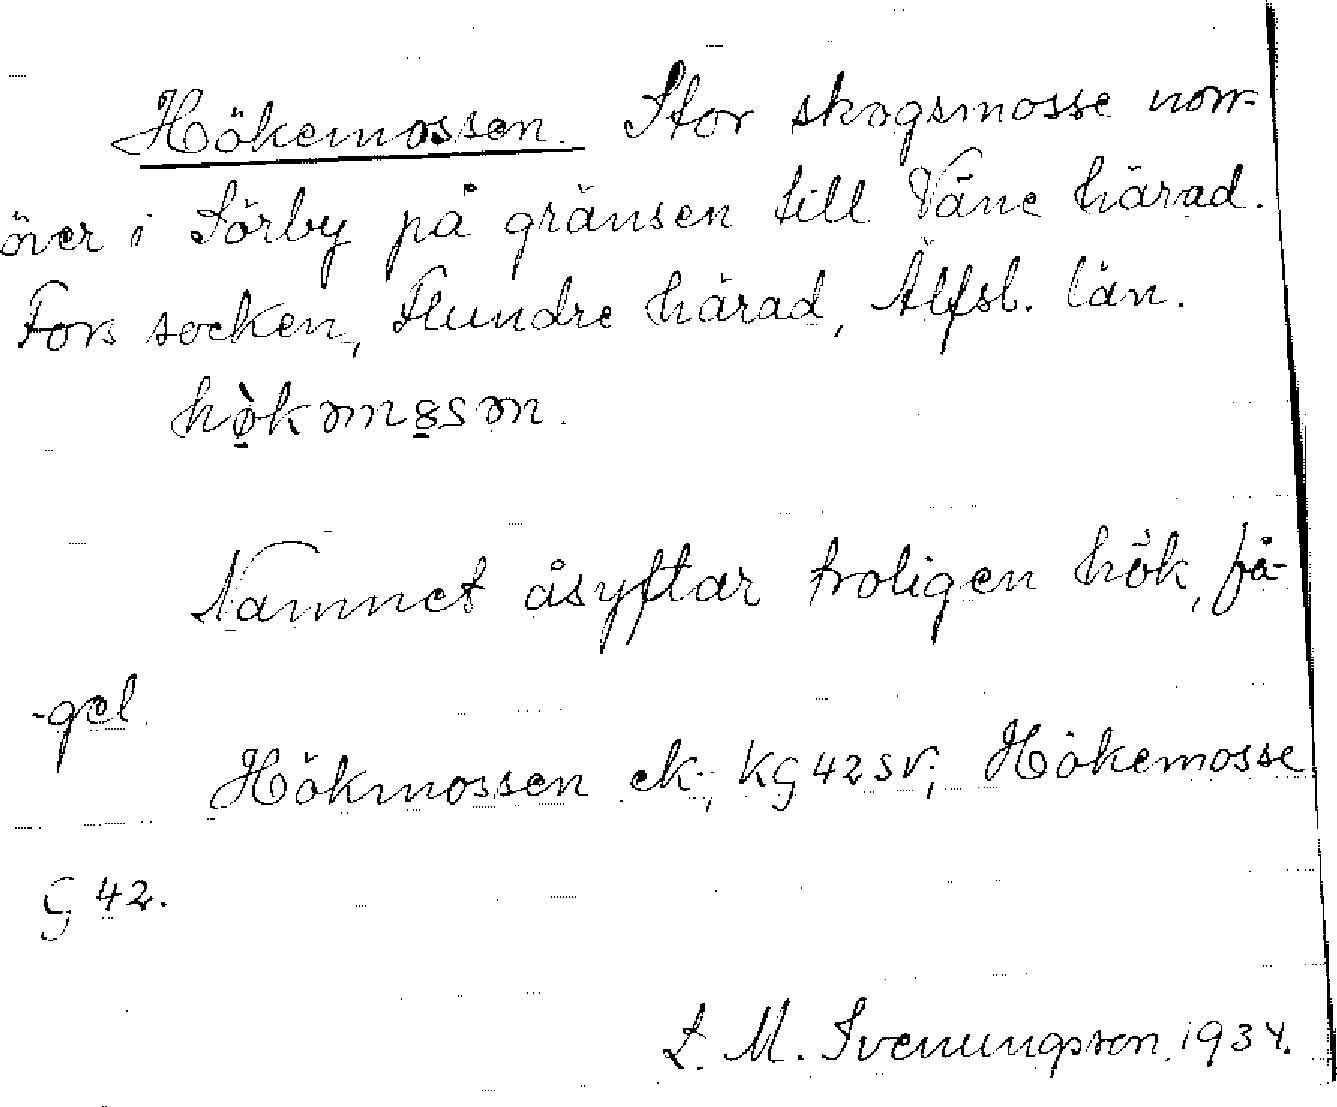 Hökemossen. Stor skogsmosse norr-
över i Sörby på gränsen till Väne härad.
Fors socken, Flundre härad, Älfsb. län.
Namnet åsyftar troligen hök, få-
-gel.
Hökmossen ek., KG 42 SV; Hökemosse
G 42.
L. M. Svenungsson 1934.